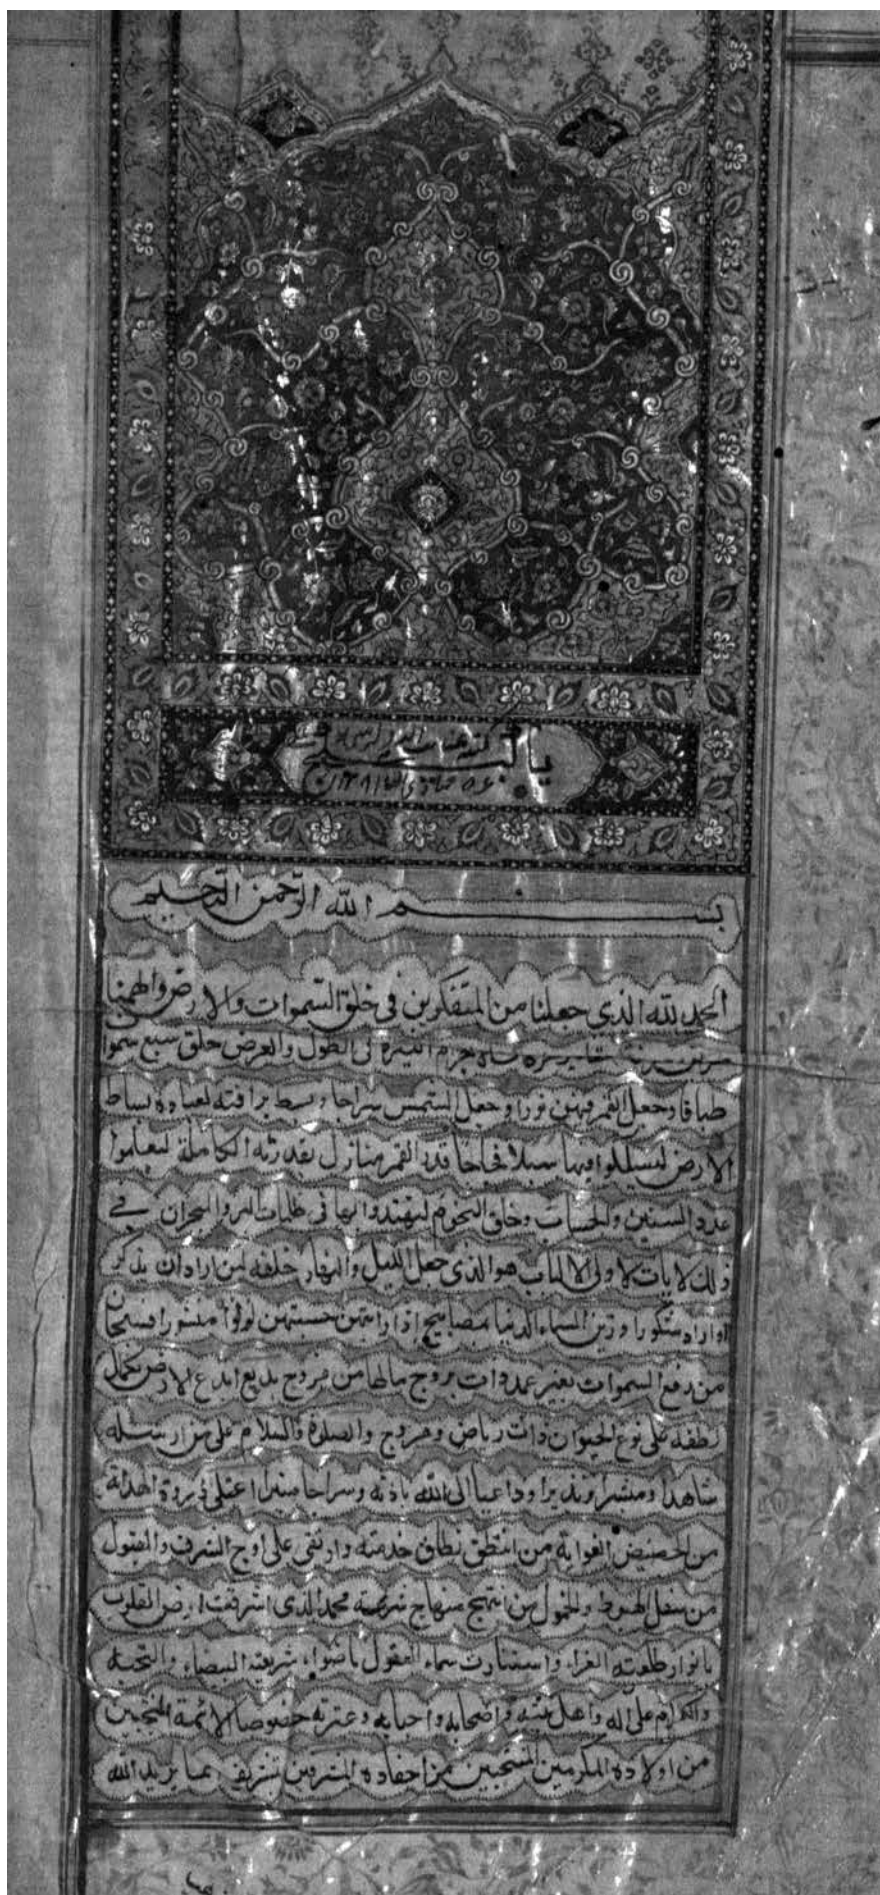 يا كبيكج
بسم الله الرحمن الرحيم
الحمد لله الذي جعلنا من المتفكرين في خلق السموات والارض والهمنا
جرم النيرة في الطول والعرض خلق سبع سموا
طباقا وجعل القمر فيهن نورا وجعل الشمس سراجا وبسط برافته لعباده بساط
الارض ليسلكوا فيها سبلا فجاجا قدر القمر منازل بقدرته الكاملة ليعلموا
عدد السنين والحساب وخلق النجوم ليهتدوا بها في ظلمات البر والبحر ان في
ذلك لايات لاولى الالباب هو الذي جعل الليل والنهار خلفة لمن اراد ان يذكر
او اراد شكورا وزين السماء الدنيا بمصابيح اذا رايتهن حسبتهن لولوا منثورا فسبحان
من رفع السموات بغير عمد ذات بروج مالها من فروج بديع ابدع الارض بكمال
لطفه على نوع الحيوان ذات رياض ومروج والصلوة والسلام على من ارسله
شاهدا ومبشرا ونذيرا وداعيا الى الله باذنه وسراجا منيرا اعتلى ذروة الهداية
من حضيض الغواية من انتطق نطاق خدمته وارتقى على اوج الشرف والقبول
من سفل الهبوط والخمول من انتهج منهاج شريعته محمد الذي اشرقت ارض القلوب
بانوار طلعته الغراء واستنارت سماء العقول باضواء شريعته البيضاء والتحية
والاكرام على آله واهل بيته واصحابه واحبابه وعترته خصوصا الائمة المنتجبين
من اولاده المكرمين المنتجبين من احفاده المشرفين بتشريف انما يريد الله